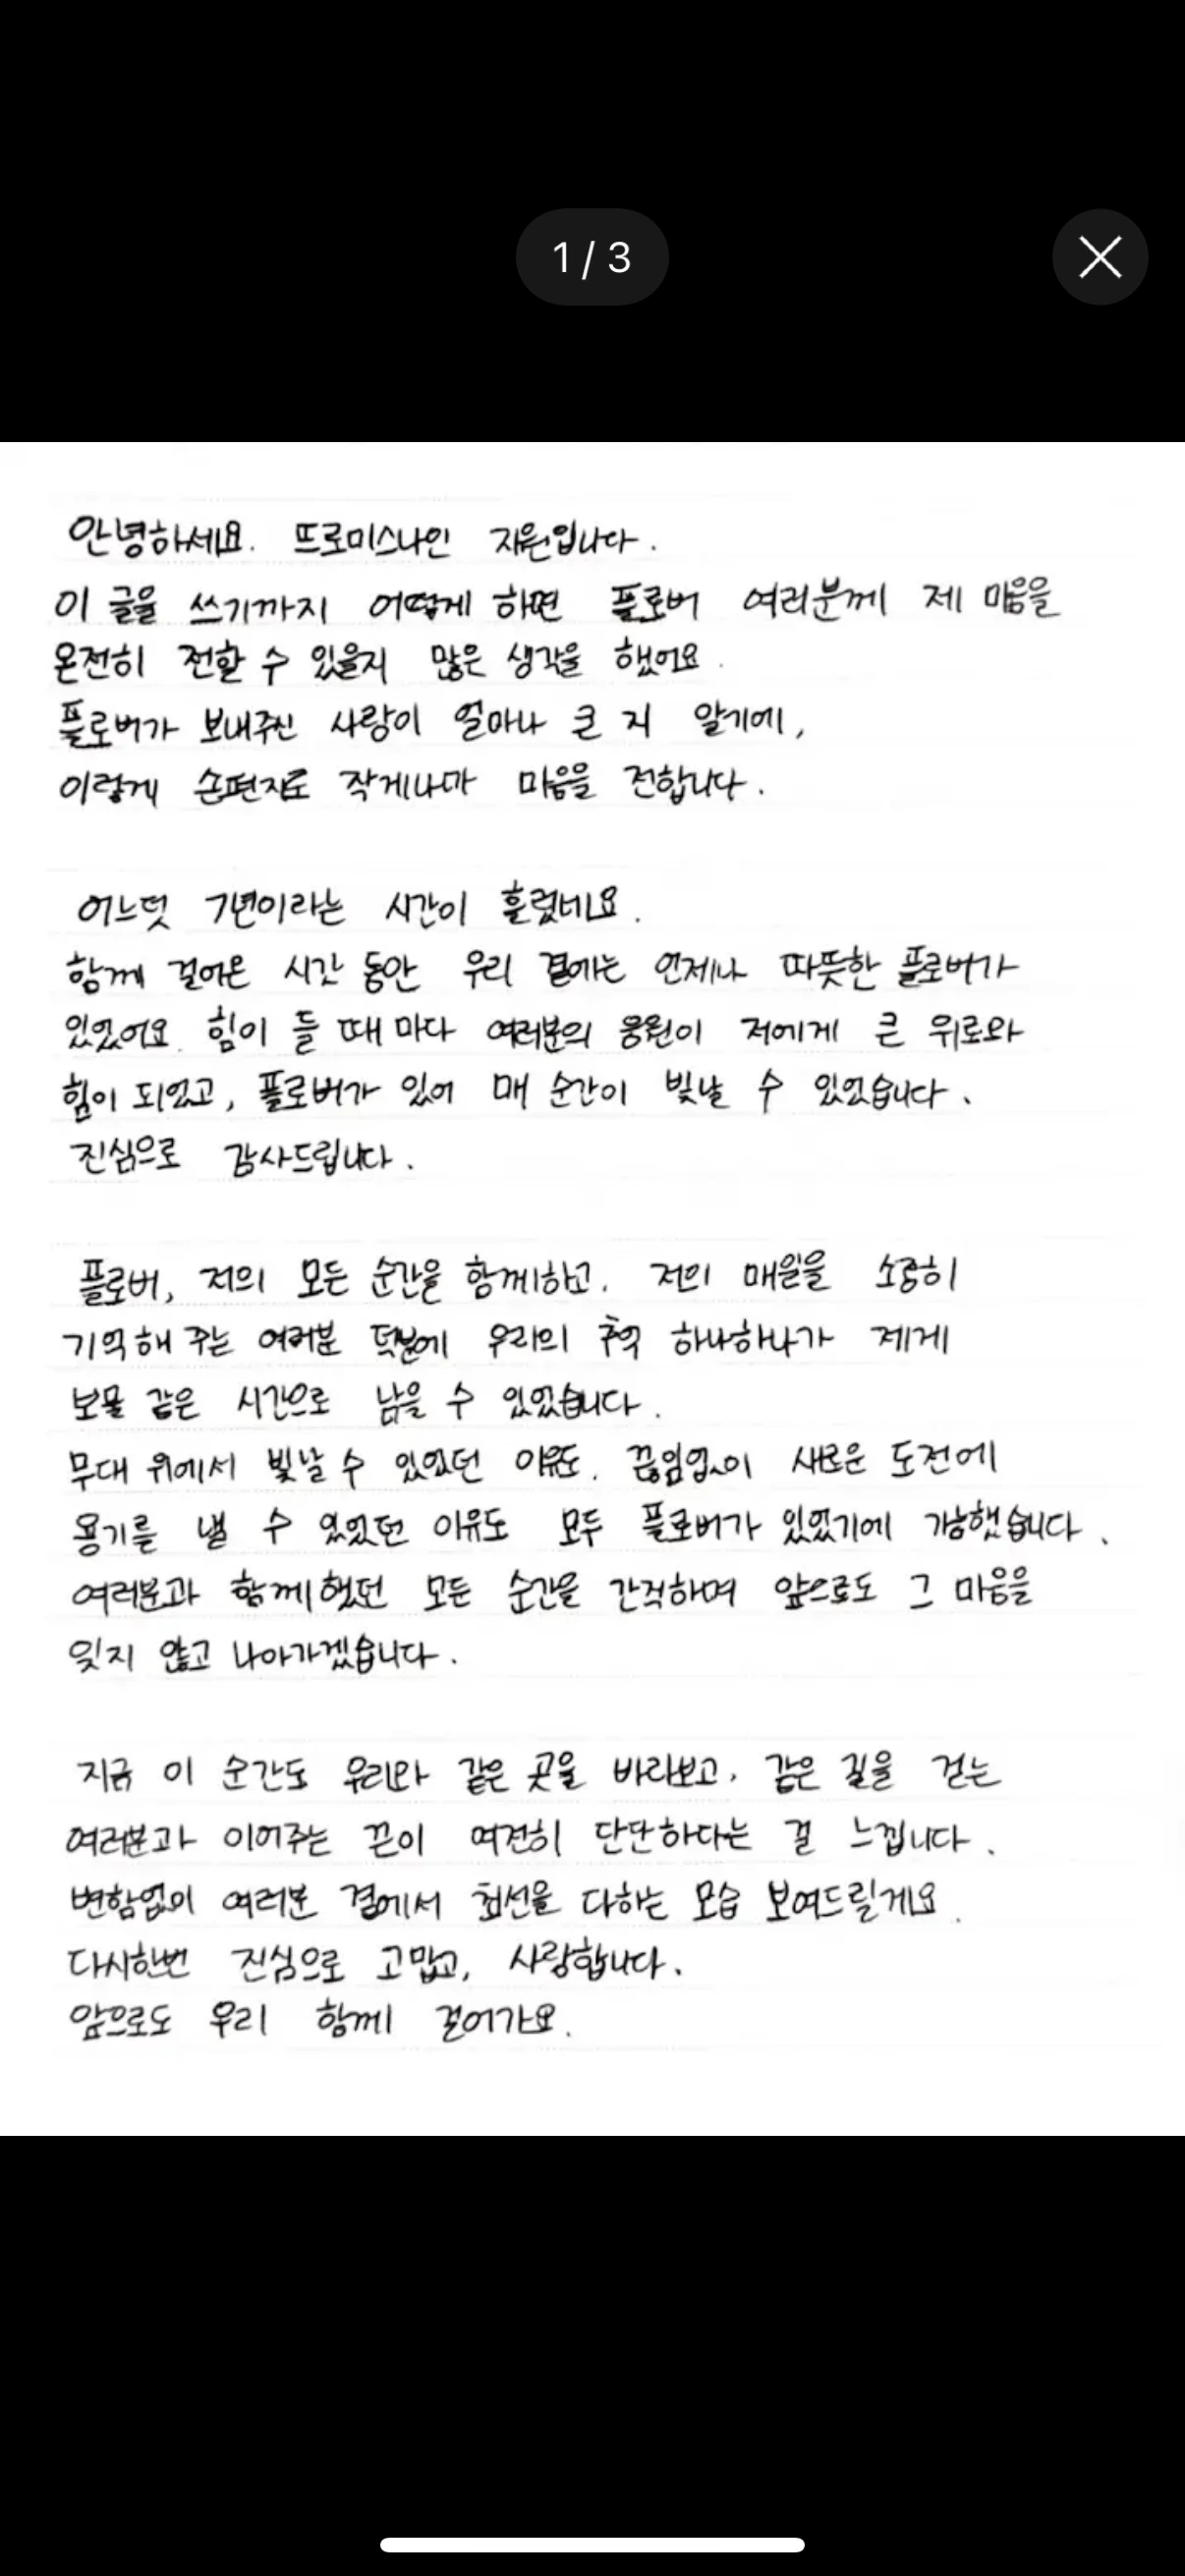 1 / 3
안녕하세요. 프로미스나인 지원입니다.
이 글을 쓰기까지 어떻게 하면 플로버 여러분께 제 마음을
온전히 전할 수 있을지 많은 생각을 했어요.
플로버가 보내주신 사랑이 얼마나 큰 지 알기에,
이렇게 손편지로 작게나마 마음을 전합니다.
어느덧 7년이라는 시간이 흘렀네요.
함께 걸어온 시간 동안 우리 곁에는 언제나 따뜻한 플로버가
있었어요. 힘이 들 때 마다 여러분의 응원이 저에게 큰 위로와
힘이 되었고, 플로버가 있어 매 순간이 빛날 수 있었습니다.
진심으로 감사드립니다.
플로버, 저의 모든 순간을 함께하고, 저의 매일을 소중히
기억해 주는 여러분 덕분에 우리의 추억 하나하나가 제게
보물 같은 시간으로 남을 수 있었습니다.
무대 위에서 빛날 수 있었던 이유도, 끊임없이 새로운 도전에
용기를 낼 수 있었던 이유도 모두 플로버가 있었기에 가능했습니다.
여러분과 함께했던 모든 순간을 간직하며 앞으로도 그 마음을
잊지 않고 나아가겠습니다.
지금 이 순간도 우리와 같은 곳을 바라보고, 같은 길을 걷는
여러분과 이어주는 끈이 여전히 단단하다는 걸 느낍니다.
변함없이 여러분 곁에서 최선을 다하는 모습 보여드릴게요.
다시한번 진심으로 고맙고, 사랑합니다.
앞으로도 우리 함께 걸어가요.